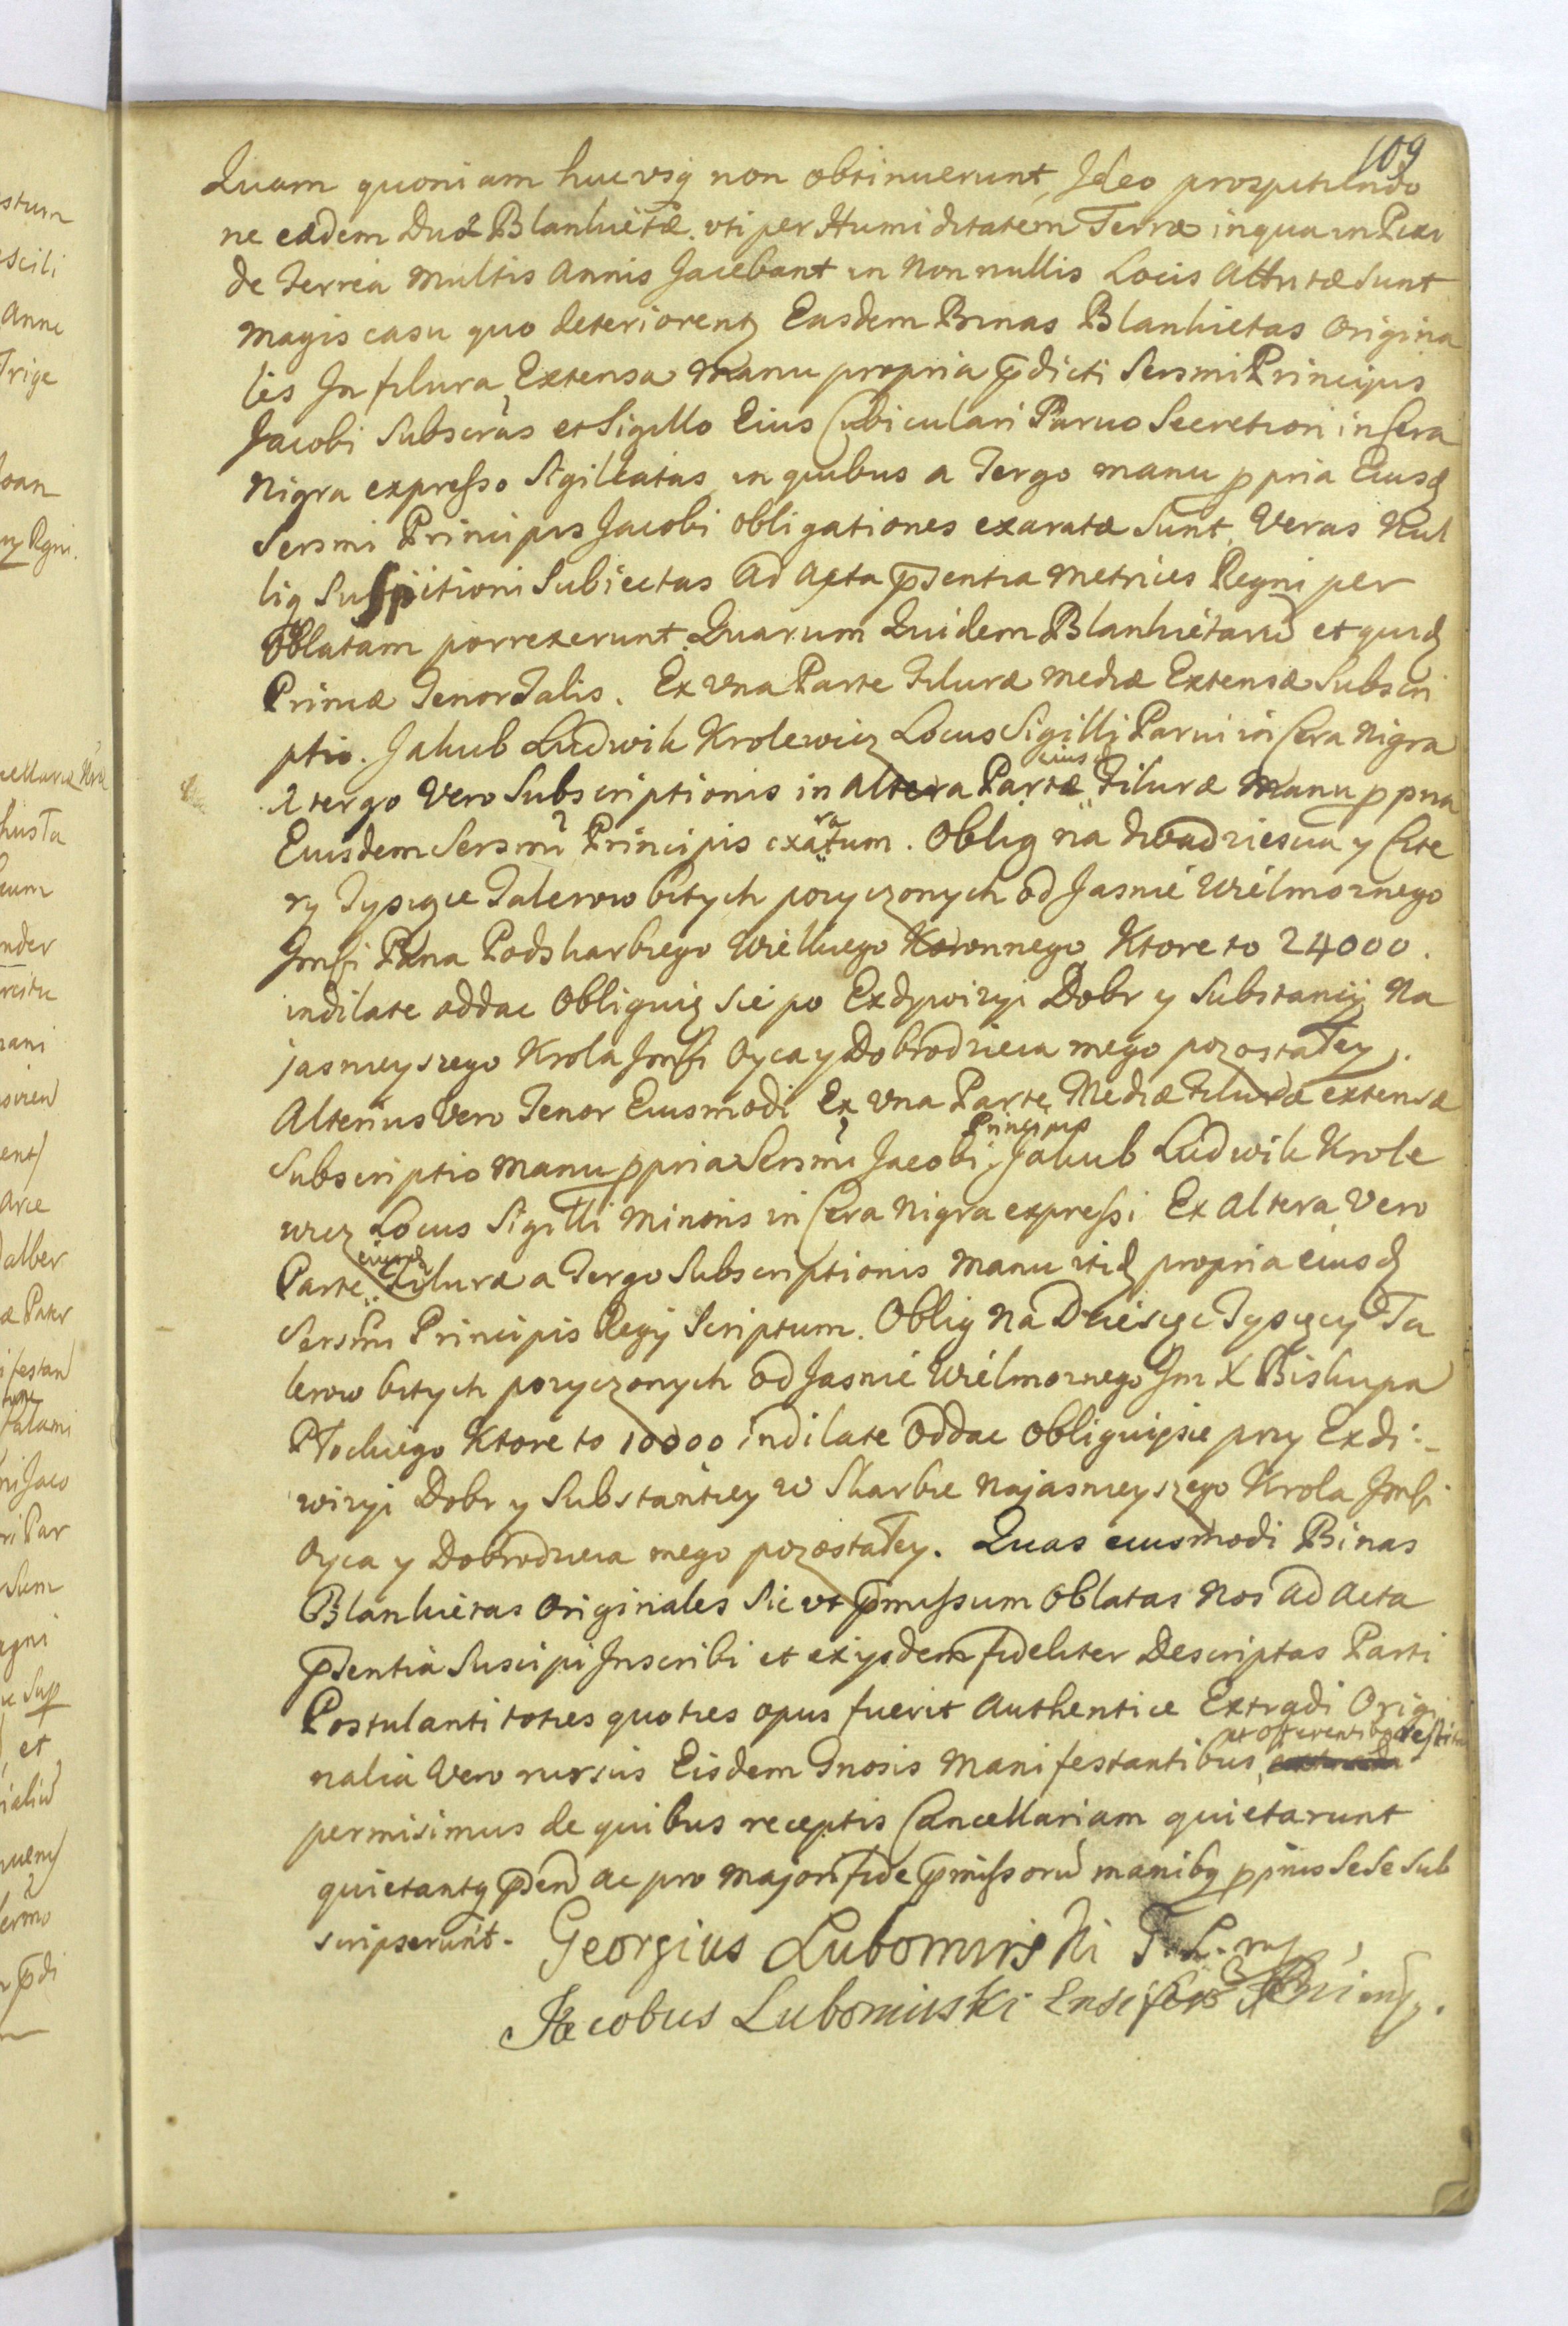 109
Quam quoniam hucusq non obtinuerunt, Ideo prospiciendo
ne eædem Duæ Blankietæ. uti per Humiditatem Terræ in qua in Pixi
de Terrea multis Annis Jacebant in Non nullis Locis Attritæ sunt
magis casu quo deteriorent Easdem Binas Blankietas Origina
les In filura Extensa manu propria p̄dicti Sersmi Principis
Jacobi Subscras et Sigillo Eius Cubiculari Paruo Secretiori in Cera
Nigra expresso Sigillatas in quibus a Tergo manu ppria Eiusd
Sersmi Principis Jacobi obligationes exaratæ sunt. Veras Nul
liq Suspitioni Subiectas Ad Acta p̄sentia Metrices Regni per
Oblatam porrexerunt. Quarum Quidem Blankietarū et quid
Primæ Tenor Talis. Ex Vna Parte Filuræ mediæ Extensæ Subscri
ptio. Jakub Ludwik Krolewicz Locus Sigilli Parui in Cera Nigra
A tergo Vero Subscriptionis in altera Parte eiusd Filuræ Manu ppria
Eiusdem Sersmi Principis exaratum. Oblig na dwadziescia y Czte
ry Tysiące Talerow bitych pozyczonych od Jasnie Wielmoznego
Jmsci Pana Podskarbiego Wielkiego Koronnego, Ktore to 24000.
indilate oddac Obliguię Sie po Exdywizyi Dobr y Substancij Na
jasnieyszego Krola Jmsci Oyca y Dobrodzieia mego pozostałey.
Alterius Vero Tenor Eiusmodi Ex Vna Parte Mediæ Filuræ extensæ
Subscriptio manu ppria Sersmi Jacobi Principis Jakub Ludwik Krole
wicz Locus Sigilli Minoris in Cera Nigra expressi Ex Altera Vero
Parte eiusd Filuræ a Tergo Subscriptionis Manu itid propria eiusd
Sersmi Principis Regij Scriptum. Oblig Na Dziesięc Tysięcy Ta
lerow bitych pozyczonych od Jasnie Wielmoznego Jm X Biskupa
Płockiego Ktore to 10000 indilate oddac obliguięsie przy Exdi
wizyi Dobr y Substantiey w Skarbie Najasnieyszego Krola Jmsci
Oyca y Dobrodzieia mego pozostałey. Quas eiusmodi Binas
Blankietas Originales Sic ut p̄missum Oblatas Nos ad Acta
p̄sentia Suscipi Inscribi et ex ijsdem fideliter Descriptas Parti
Postulanti toties quoties opus fuerit Authentice Extradi Origi
nalia Vero rursus Eisdem Gnosis Manifestantibus et offerentibus restitui
permisimus de quibus receptis Cancellariam quietarunt
quietantq p̄sent ac pro majori fide p̄missorū manibq pprijs Sese Sub
scripserunt. Georgius Lubomirski
Jacobus Lubomirski Ensifer